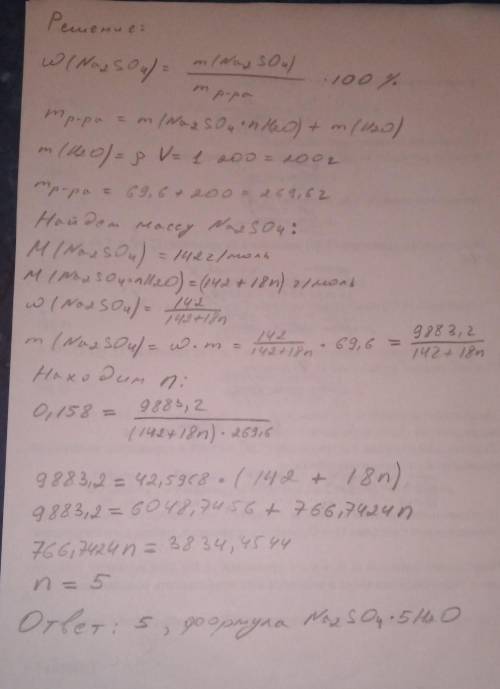 Решение:
ω(Na₂SO₄) = m(Na₂SO₄) / mр-ра · 100%
mр-ра = m(Na₂SO₄·nH₂O) + m(H₂O)
m(H₂O) = ρ V = 1 200 = 200г
mр-ра = 69,6 + 200 = 269,6г
Найдем массу Na₂SO₄:
M(Na₂SO₄) = 142 г/моль
M(Na₂SO₄·nH₂O) = (142 + 18n) г/моль
ω(Na₂SO₄) = 142 / 142+18n
m(Na₂SO₄) = ω·m = 142 / 142+18n · 69,6 = 9883,2 / 142+18n
Находим n:
0,158 = 9883,2 / (142+18n)·269,6
9883,2 = 42,5968·(142 + 18n)
9883,2 = 6048,7456 + 766,7424n
766,7424n = 3834,4544
n = 5
Ответ: 5, формула Na₂SO₄·5H₂O